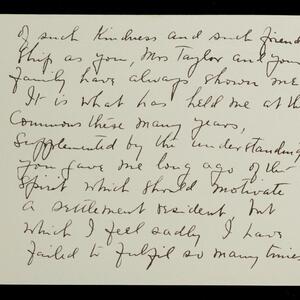 of such kindness and such friend
ship as you, Mrs Taylor and your
family have always shown me
It is what has held me at the
Commons these many years,
supplemented by the understanding
you gave me long ago of the
spirit which should motivate
a settlement resident, but
which I feel sadly I have
failed to fulfil so many times